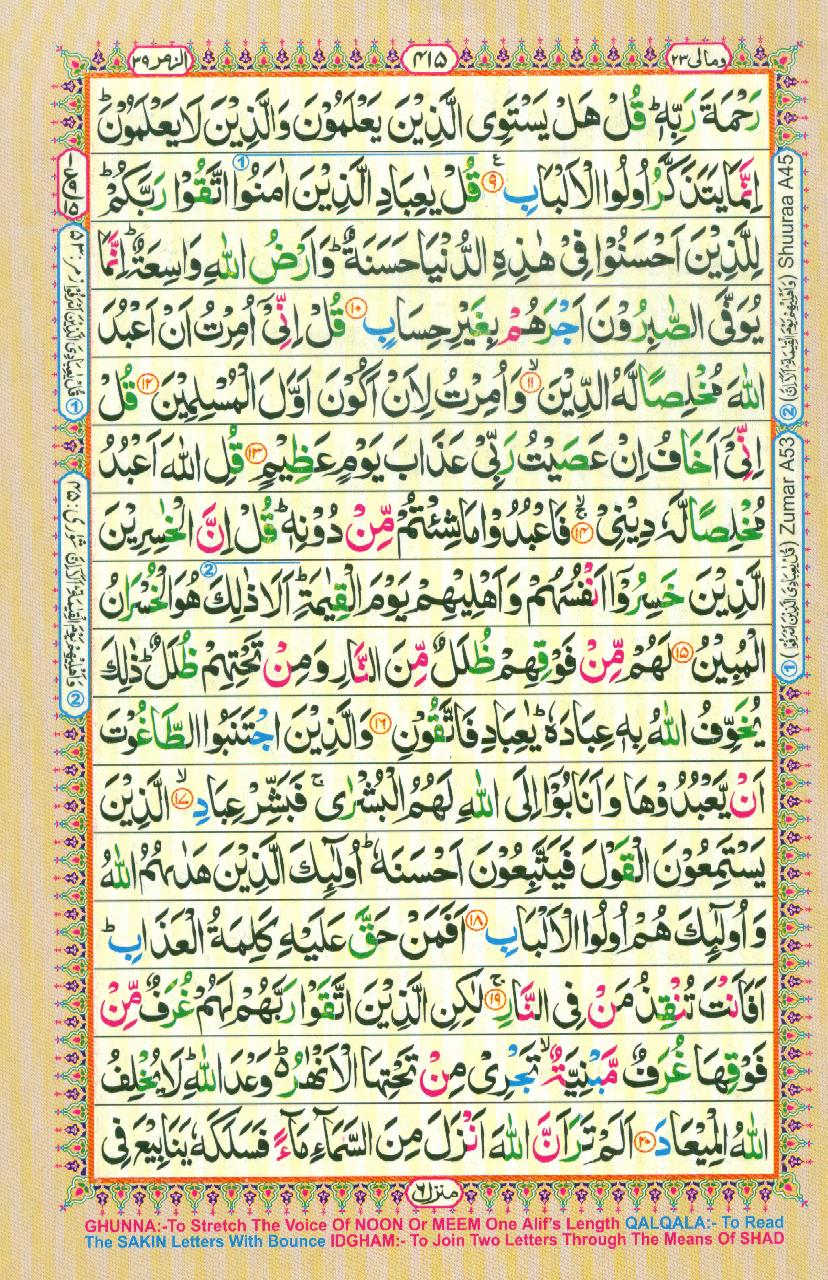 الزمر ٣٩
٤١٥
ومالى ٢٣
رَحْمَةَ رَبِّهٖ ؕ قُلْ هَلْ يَسْتَوِى الَّذِيْنَ يَعْلَمُوْنَ وَالَّذِيْنَ لَا يَعْلَمُوْنَ ؕ
اِنَّمَا يَتَذَكَّرُ اُولُوا الْاَلْبَابِ ۹ قُلْ يٰعِبَادِ الَّذِيْنَ اٰمَنُوا اتَّقُوْا رَبَّكُمْ ؕ
لِلَّذِيْنَ اَحْسَنُوْا فِىْ هٰذِهِ الدُّنْيَا حَسَنَةٌ ؕ وَاَرْضُ اللّٰهِ وَاسِعَةٌ ؕ اِنَّمَا
يُوَفَّى الصّٰبِرُوْنَ اَجْرَهُمْ بِغَيْرِ حِسَابٍ ۱۰ قُلْ اِنِّىْۤ اُمِرْتُ اَنْ اَعْبُدَ
اللّٰهَ مُخْلِصًا لَّهُ الدِّيْنَ ۙ ۱۱ وَاُمِرْتُ لِاَنْ اَكُوْنَ اَوَّلَ الْمُسْلِمِيْنَ ۱۲ قُلْ
اِنِّىْۤ اَخَافُ اِنْ عَصَيْتُ رَبِّىْ عَذَابَ يَوْمٍ عَظِيْمٍ ۱۳ قُلِ اللّٰهَ اَعْبُدُ
مُخْلِصًا لَّهٗ دِيْنِىْ ۙ ۱۴ فَاعْبُدُوْا مَا شِئْتُمْ مِّنْ دُوْنِهٖ ؕ قُلْ اِنَّ الْخٰسِرِيْنَ
الَّذِيْنَ خَسِرُوْۤا اَنْفُسَهُمْ وَاَهْلِيْهِمْ يَوْمَ الْقِيٰمَةِ ؕ اَلَا ذٰلِكَ هُوَ الْخُسْرَانُ
الْمُبِيْنُ ۱۵ لَهُمْ مِّنْ فَوْقِهِمْ ظُلَلٌ مِّنَ النَّارِ وَمِنْ تَحْتِهِمْ ظُلَلٌ ؕ ذٰلِكَ
يُخَوِّفُ اللّٰهُ بِهٖ عِبَادَهٗ ؕ يٰعِبَادِ فَاتَّقُوْنِ ۱۶ وَالَّذِيْنَ اجْتَنَبُوا الطَّاغُوْتَ
اَنْ يَّعْبُدُوْهَا وَاَنَابُوْۤا اِلَى اللّٰهِ لَهُمُ الْبُشْرٰى ۚ فَبَشِّرْ عِبَادِ ۙ ۱۷ الَّذِيْنَ
يَسْتَمِعُوْنَ الْقَوْلَ فَيَتَّبِعُوْنَ اَحْسَنَهٗ ؕ اُولٰٓئِكَ الَّذِيْنَ هَدٰىهُمُ اللّٰهُ
وَاُولٰٓئِكَ هُمْ اُولُوا الْاَلْبَابِ ۱۸ اَفَمَنْ حَقَّ عَلَيْهِ كَلِمَةُ الْعَذَابِ ؕ
اَفَاَنْتَ تُنْقِذُ مَنْ فِى النَّارِ ۚ ۱۹ لٰكِنِ الَّذِيْنَ اتَّقَوْا رَبَّهُمْ لَهُمْ غُرَفٌ مِّنْ
فَوْقِهَا غُرَفٌ مَّبْنِيَّةٌ ۙ تَجْرِىْ مِنْ تَحْتِهَا الْاَنْهٰرُ ؕ وَعْدَ اللّٰهِ ؕ لَا يُخْلِفُ
اللّٰهُ الْمِيْعَادَ ۲۰ اَلَمْ تَرَ اَنَّ اللّٰهَ اَنْزَلَ مِنَ السَّمَآءِ مَآءً فَسَلَكَهٗ يَنَابِيْعَ فِى
منزل ٦
② Shuuraa A45
① Zumar A53
GHUNNA:-To Stretch The Voice Of NOON Or MEEM One Alif's Length QALQALA:- To Read
The SAKIN Letters With Bounce IDGHAM:- To Join Two Letters Through The Means Of SHAD